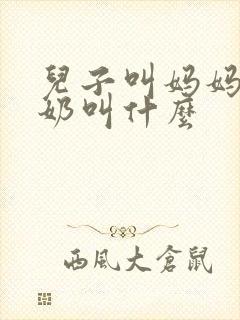 兒子叫妈妈
奶叫什麼
西風大倉鼠